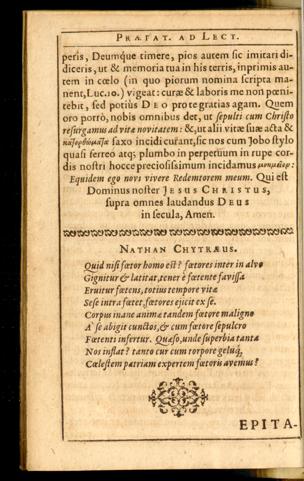 PRÆFAT. AD LECT.
peris, Deumque timere, pios autem sic imitari di-
diceris, ut & memoria tua in his terris, inprimis au-
tem in cœlo (in quo piorum nomina scripta ma-
nent, Luc.10.) vigeat: curæ & laboris me non pœni-
tebit, sed potiùs DEO pro te gratias agam. Quem
oro porrò, nobis omnibus det, ut sepulti cum Christo
resurgamus ad vitæ novitatem: &, ut alii vitæ suæ acta &
κατορθώματα saxo incidi curant, sic nos cum Jobo stylo
quasi ferreo atq; plumbo in perpetuum in rupe cor-
dis nostri hocce preciosissimum incidamus
Equidem ego novi vivere Redemtorem meum. Qui est
Dominus noster JESUS CHRISTUS,
supra omnes laudandus DEUS
in secula, Amen.
NATHAN CHYTRÆUS.
Quid nisi fœtor homo est? fœtores inter in alvo
Gignitur & latitat, tener è fœtente favissa
Eruitur fœtens, totius tempore vitæ
Sese intra fœtet, fœtores ejicit ex se.
Corpus inane animæ tandem fœtore maligno
A' se abigit cunctos, & cum fœtore sepulcro
Fœtenti infertur. Quæso, unde superbia tanta
Nos inflat? tanto cur cum torpore geluq;
Cœlestem patriam expertem fœtoris avemus?
EPITA-